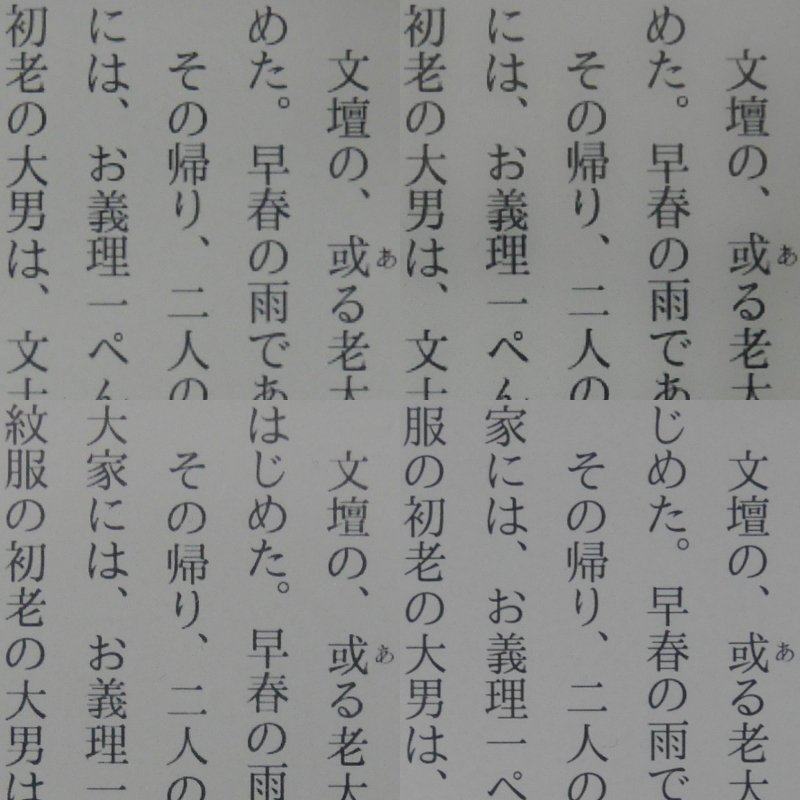 文壇の、或る老大
あ
めた。早春の雨であ
その帰り、二人の
には、お義理一ぺん
初老の大男は、文士
文壇の、或る老大
あ
めた。早春の雨であ
その帰り、二人の
には、お義理一ぺん
初老の大男は、文士
文壇の、或る老大
あ
はじめた。早春の雨
その帰り、二人の
大家には、お義理一
紋服の初老の大男は
文壇の、或る老大
あ
じめた。早春の雨で
その帰り、二人の
家には、お義理一ぺ
服の初老の大男は、